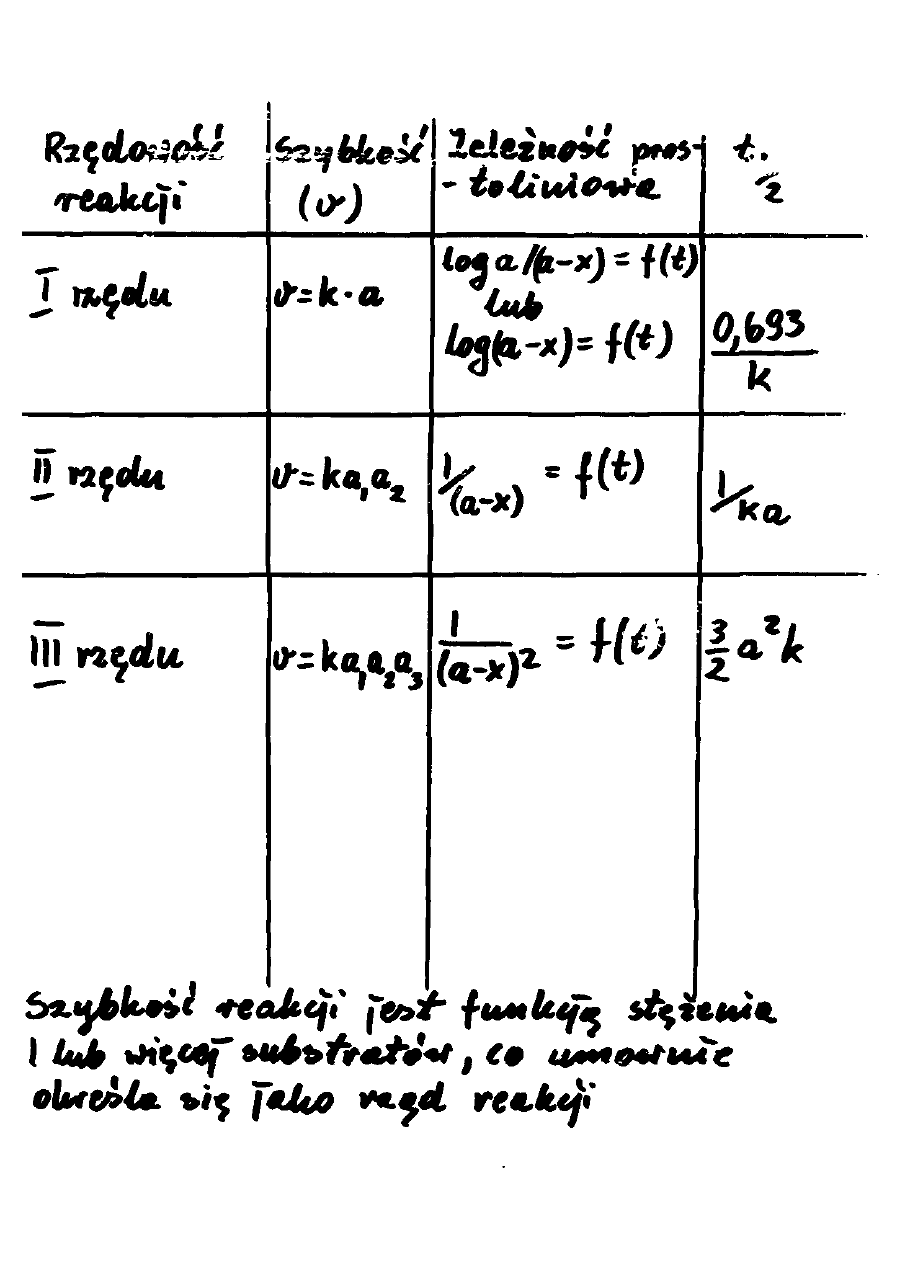 Rzędowość Szybkość Zależność pros- t.
reakcji (v) - toliniowa 1/2
I rzędu v = k · a log a/(a-x) = f(t)
lub
log(a-x) = f(t) 0,693/k
II rzędu v = ka₁a₂ 1/(a-x) = f(t) 1/ka
III rzędu v = ka₁a₂a₃ 1/(a-x)² = f(t) 3/2 a²k
Szybkość reakcji jest funkcją stężenia
1 lub więcej substratów, co umownie
określa się jako rząd reakcji